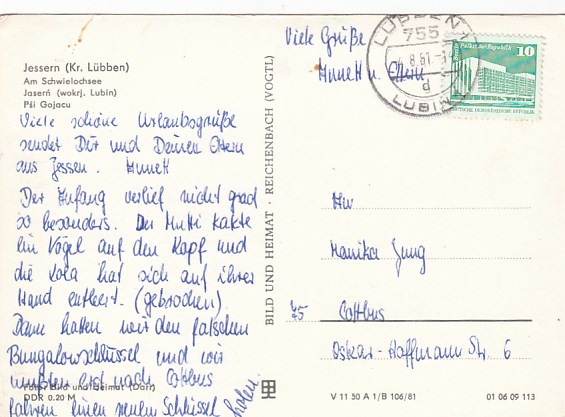 Jessern (Kr. Lübben)
Am Schwielochsee
Jaserń (wokrj. Lubin)
Pśi Gojacu
Viele schöne Urlaubsgrüße
sendet Dir und Deinen Eltern
aus Jessen. Annett
Der Anfang verlief nicht grad
so besonders. Der Mutti kakte
ein Vogel auf den Kopf und
die Lola hat sich auf ihrer
Hand entleert. (gebrochen)
Dann hatten wir den falschen
Bungalowschlüssel und wir
mußten erst nach Cottbus
fahren einen neuen Schlüssel holen.
Foto: Bild und Heimat (Darr)
DDR 0.20 M
BILD UND HEIMAT · REICHENBACH (VOGTL)
Viele Grüße
Annett u. Eltern
LÜBBEN 1
755
d
LUBIN
10
Palast der Republik
DEUTSCHE DEMOKRATISCHE REPUBLIK
Monika Jung
75 Cottbus
Oskar-Hoffmann Str. 6
V 11 50 A 1/B 106/81
01 06 09 113